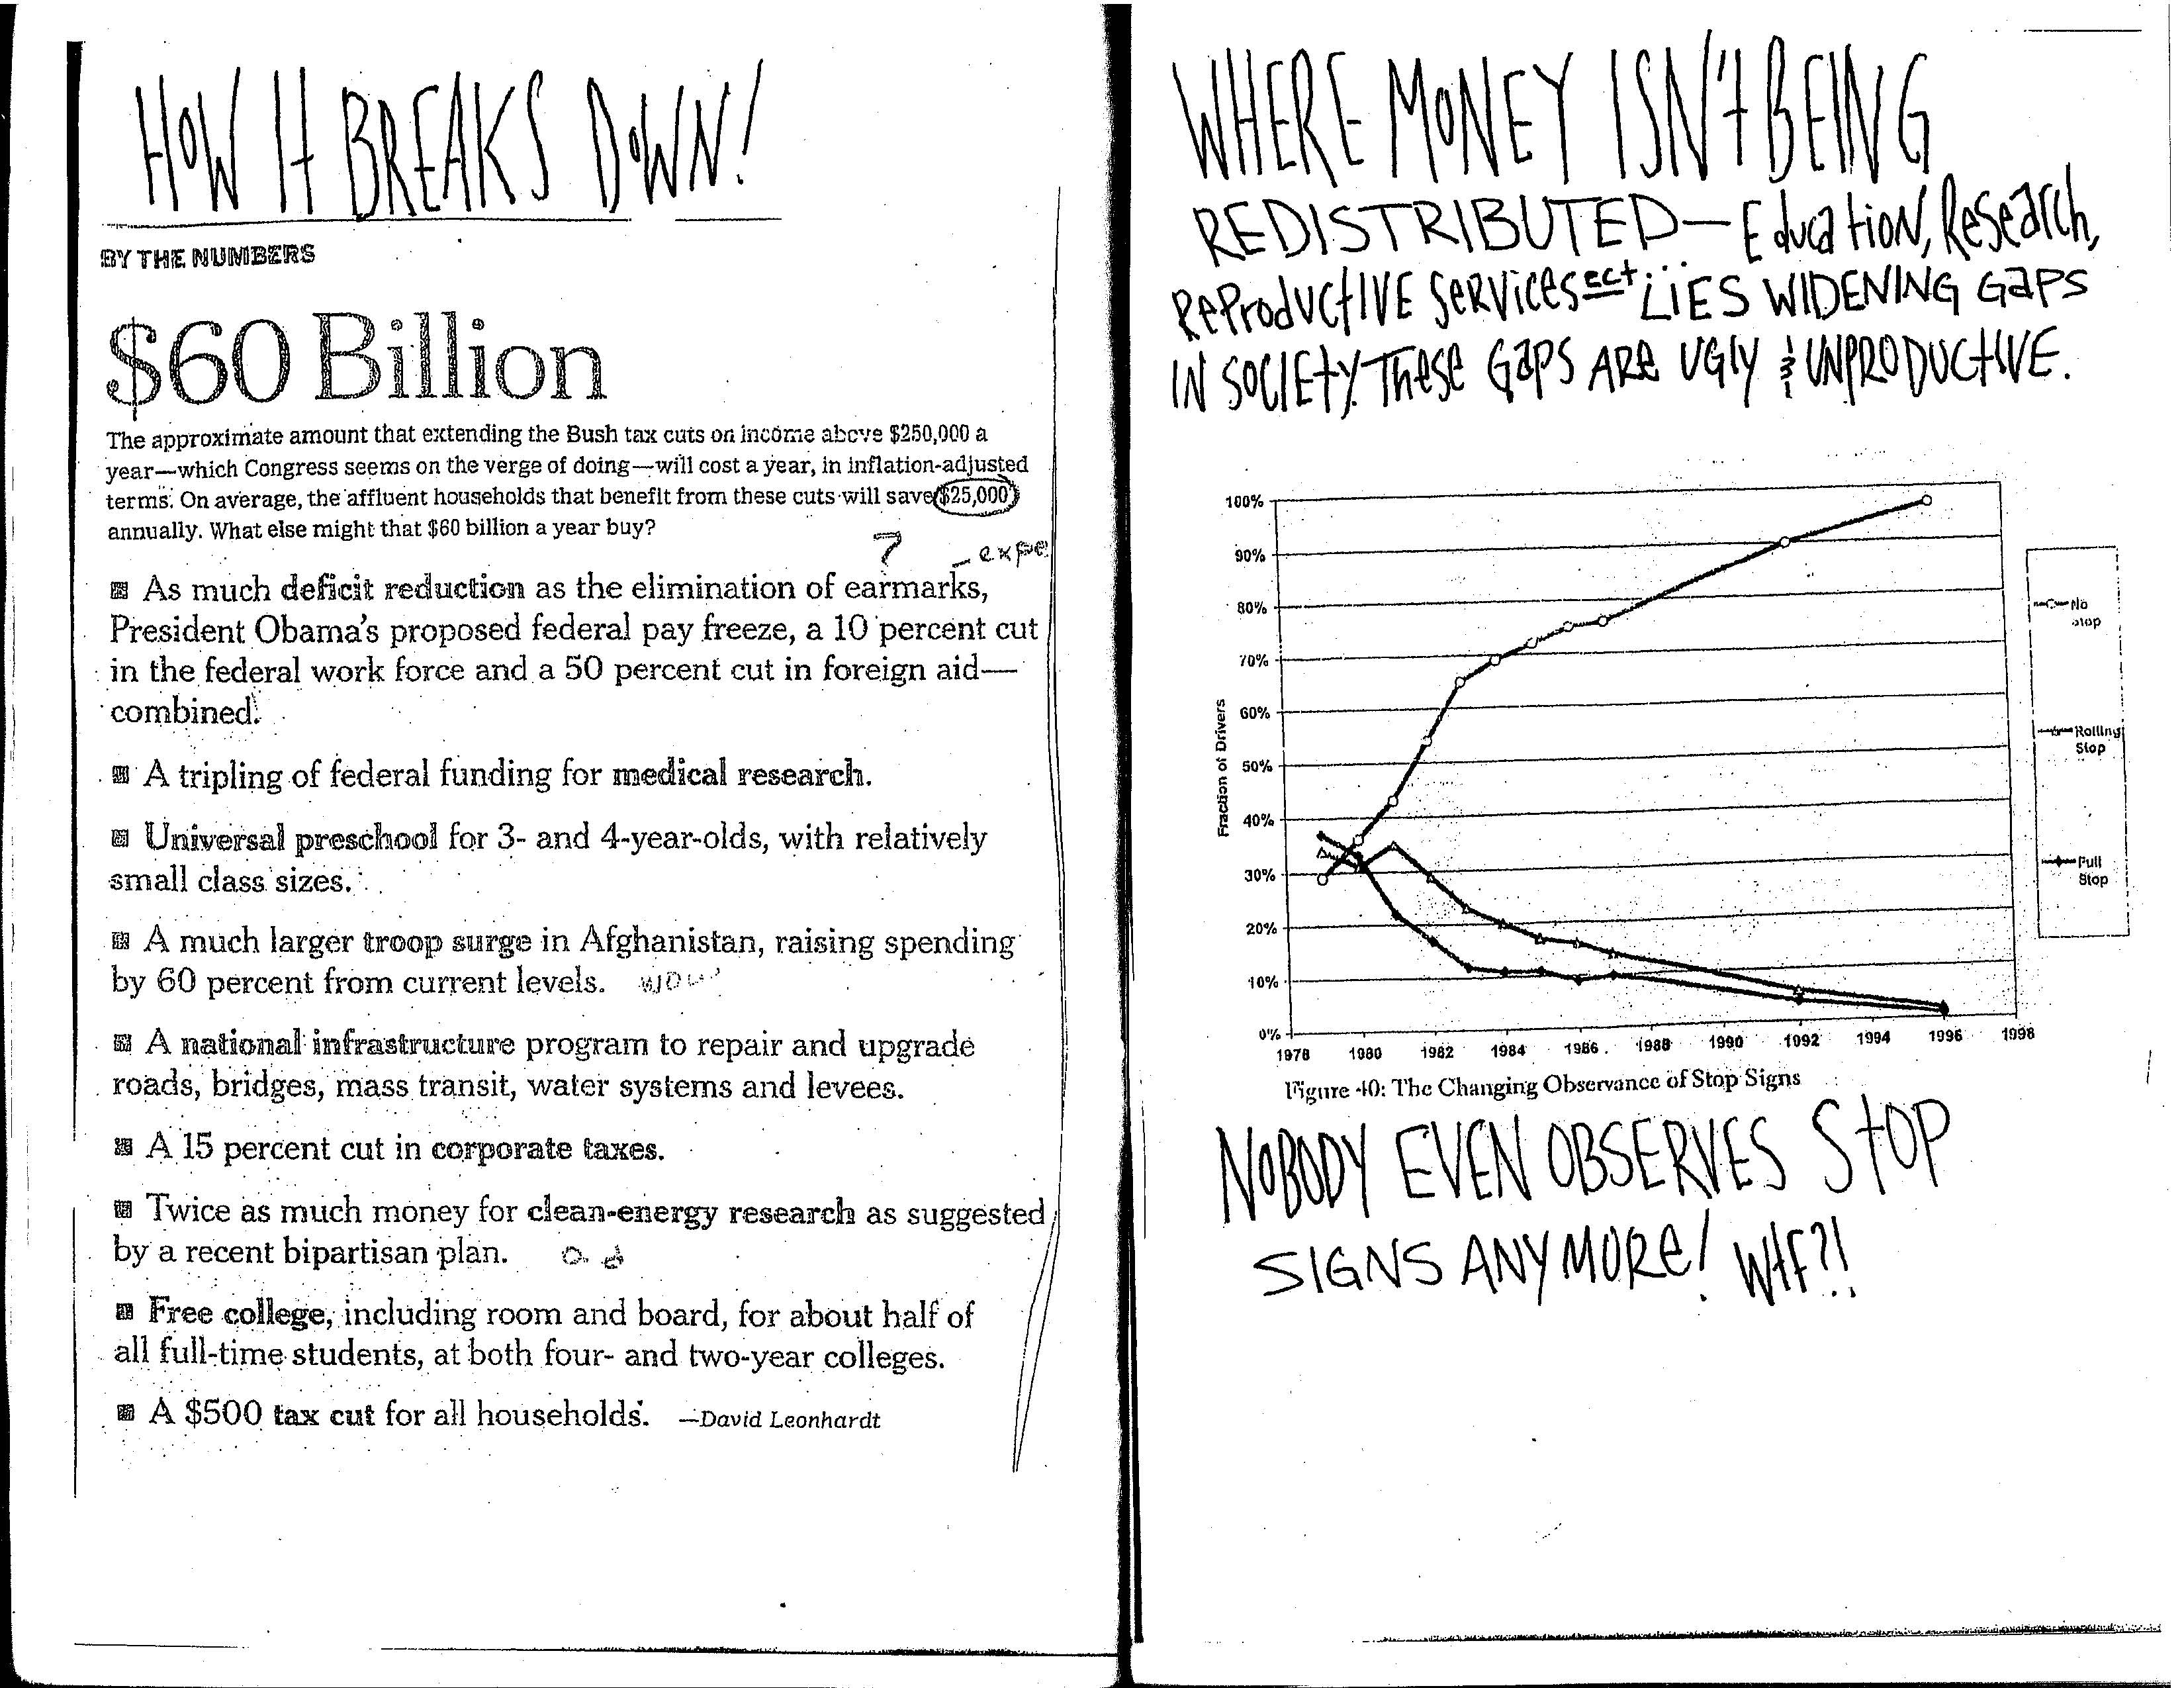 HOW IT BREAKS DOWN!
BY THE NUMBERS
$60 Billion
The approximate amount that extending the Bush tax cuts on income above $250,000 a
year—which Congress seems on the verge of doing—will cost a year, in inflation-adjusted
terms. On average, the affluent households that benefit from these cuts will save $25,000
annually. What else might that $60 billion a year buy?
? expe
As much deficit reduction as the elimination of earmarks,
President Obama's proposed federal pay freeze, a 10 percent cut
in the federal work force and a 50 percent cut in foreign aid—
combined.
A tripling of federal funding for medical research.
Universal preschool for 3- and 4-year-olds, with relatively
small class sizes.
A much larger troop surge in Afghanistan, raising spending
by 60 percent from current levels. wow
A national infrastructure program to repair and upgrade
roads, bridges, mass transit, water systems and levees.
A 15 percent cut in corporate taxes.
Twice as much money for clean-energy research as suggested
by a recent bipartisan plan.
Free college, including room and board, for about half of
all full-time students, at both four- and two-year colleges.
A $500 tax cut for all households. —David Leonhardt
WHERE MONEY ISN't BEING
REDISTRIBUTED— Education, Research,
Reproductive Services ect... LIES WIDENING GaPS
IN SOCIEty. These Gaps ARe UGly & UNPRODUCtIVE.
100%
90%
80%
70%
60%
50%
40%
30%
20%
10%
0%
Fraction of Drivers
1978 1980 1982 1984 1986 1988 1990 1992 1994 1996 1998
No
stop
Rolling
Stop
Full
Stop
Figure 40: The Changing Observance of Stop Signs
NOBODY EVEN OBSERVES StOP
SIGNS ANYMORe! WtF?!